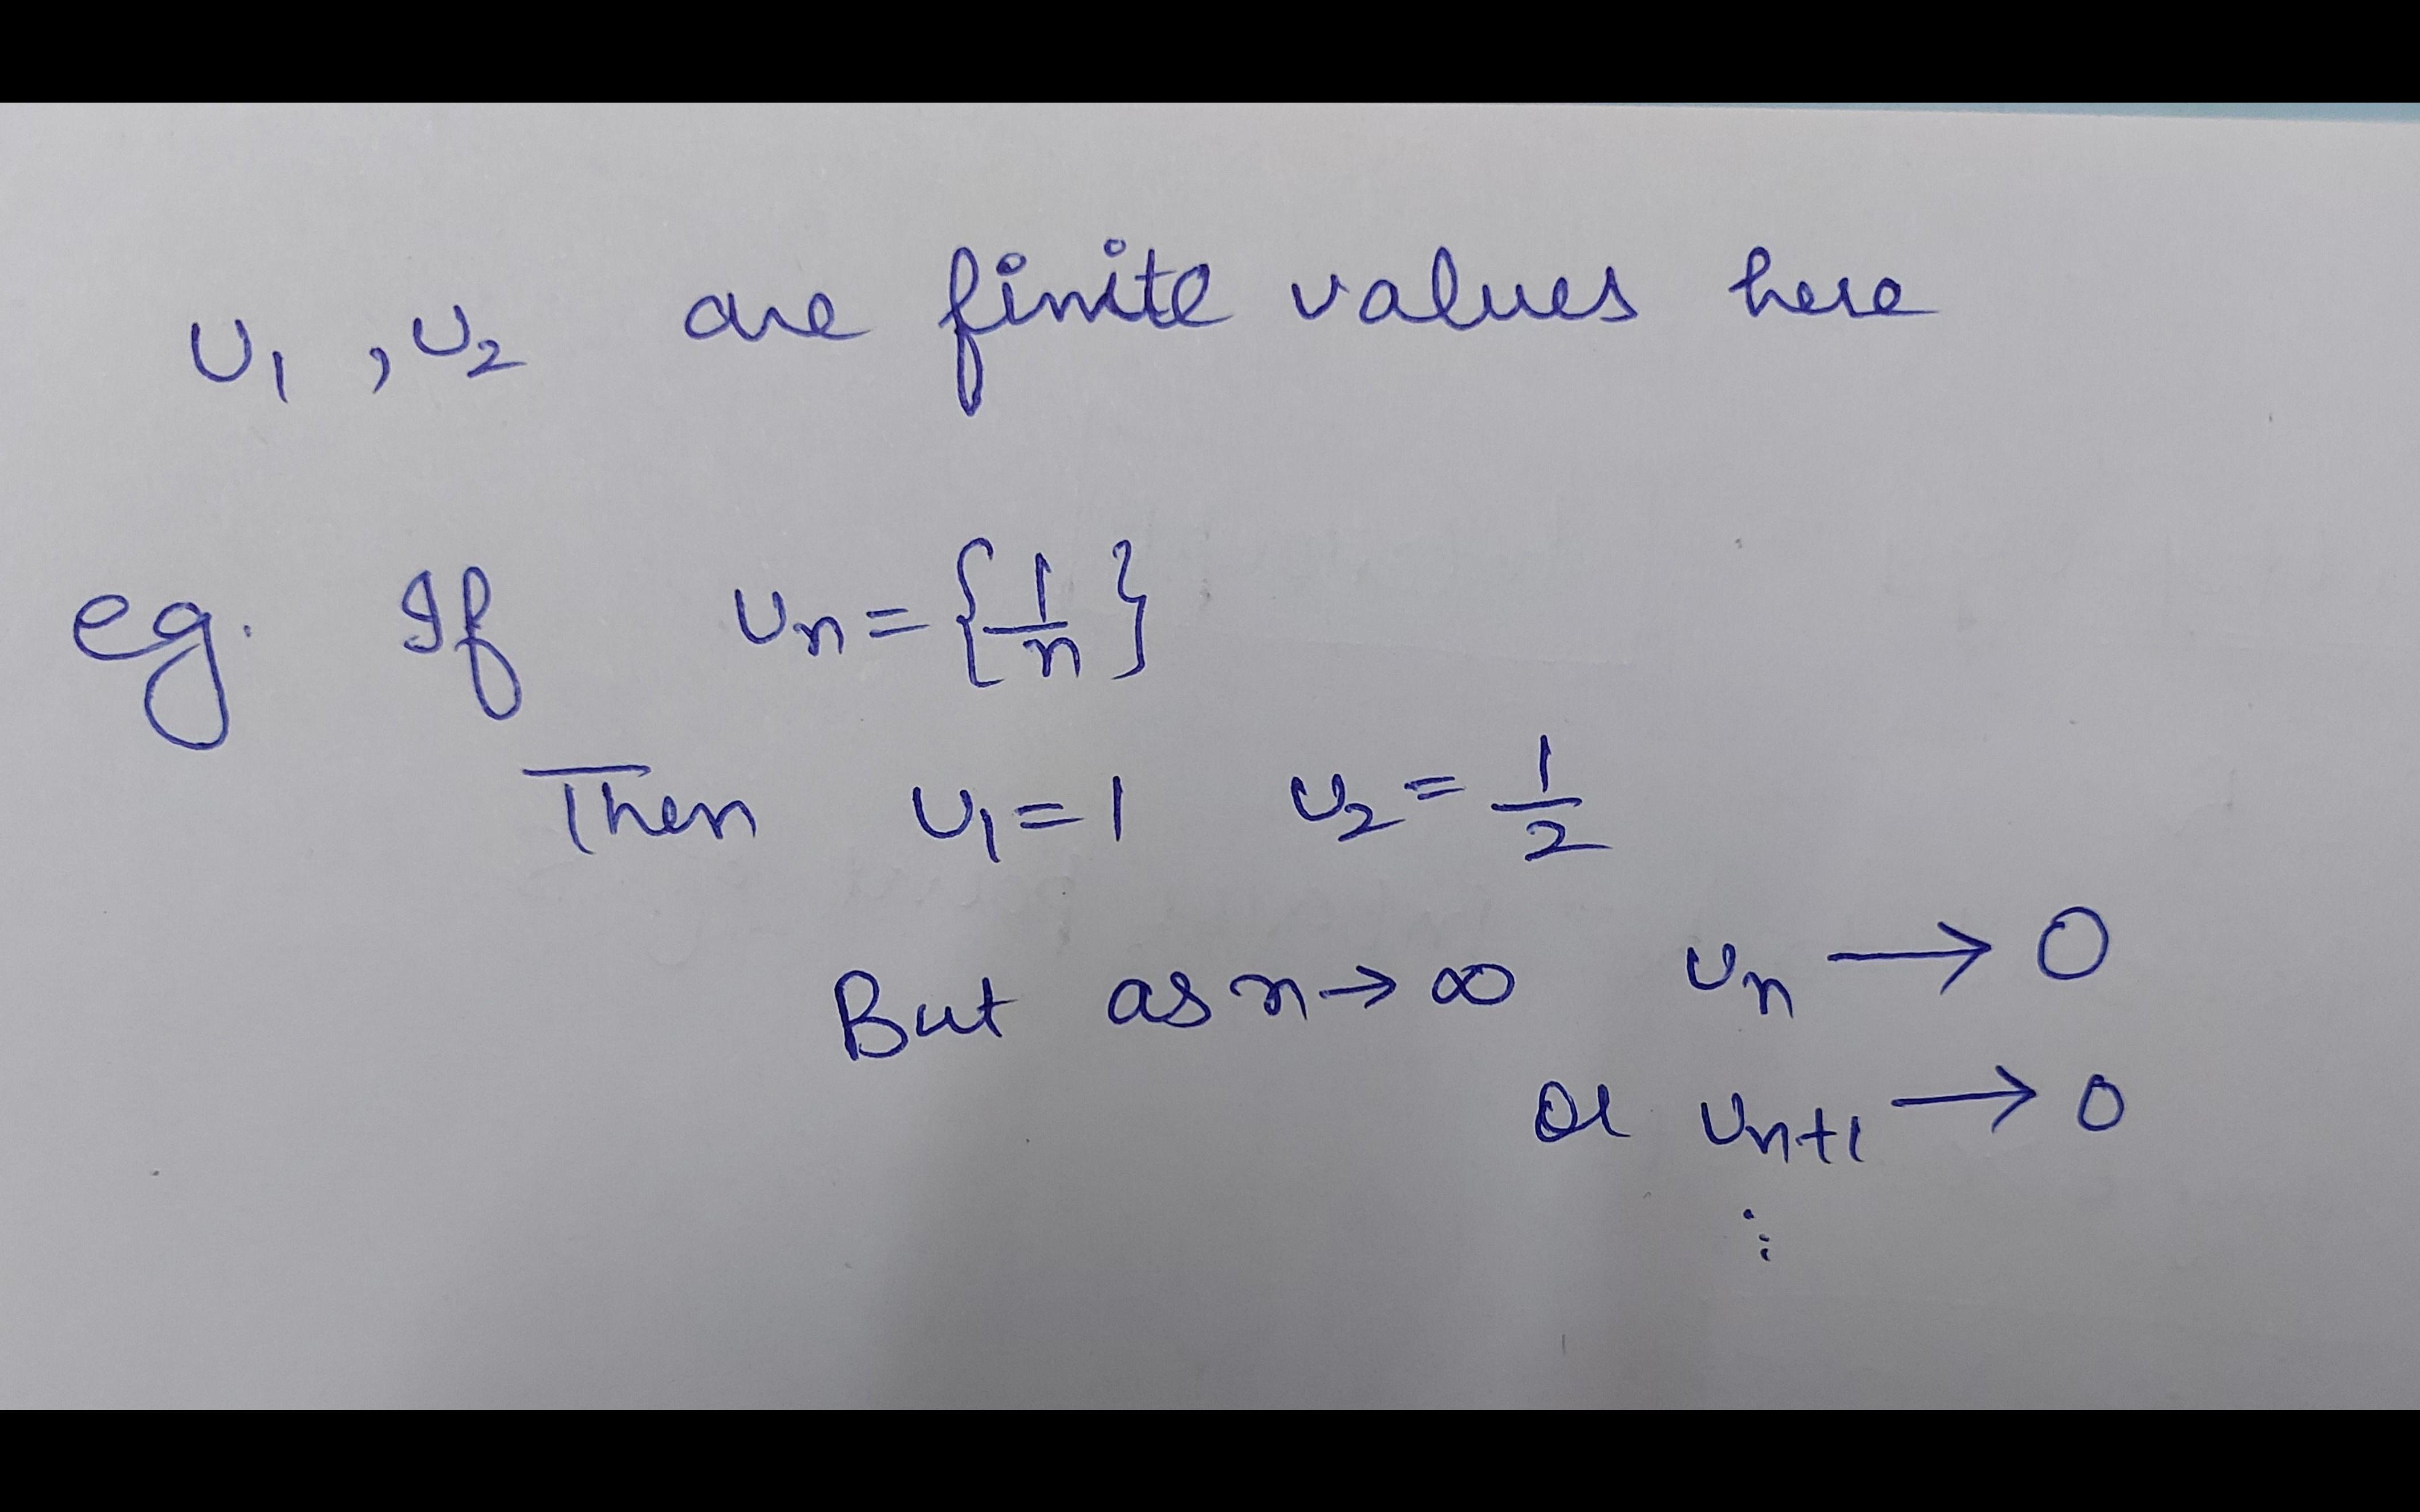 U₁, U₂ are finite values here
eg. If Uₙ = {1/n}
Then U₁ = 1 U₂ = 1/2
But as n → ∞ Uₙ → 0
or Uₙ₊₁ → 0
⋮